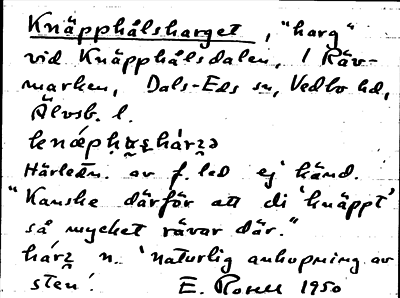 Knäpphålsharget, "harg"
vid Knäpphålsdalen, i Räv-
marken, Dals-Eds sn, Vedbo hd,
Älvsb. l.
Härledn. av f. led ej känd.
"Kanske därför att di 'knäppt'
så mycket rävar där."
n. 'naturlig anhopning av
sten'. E. Rosell 1950